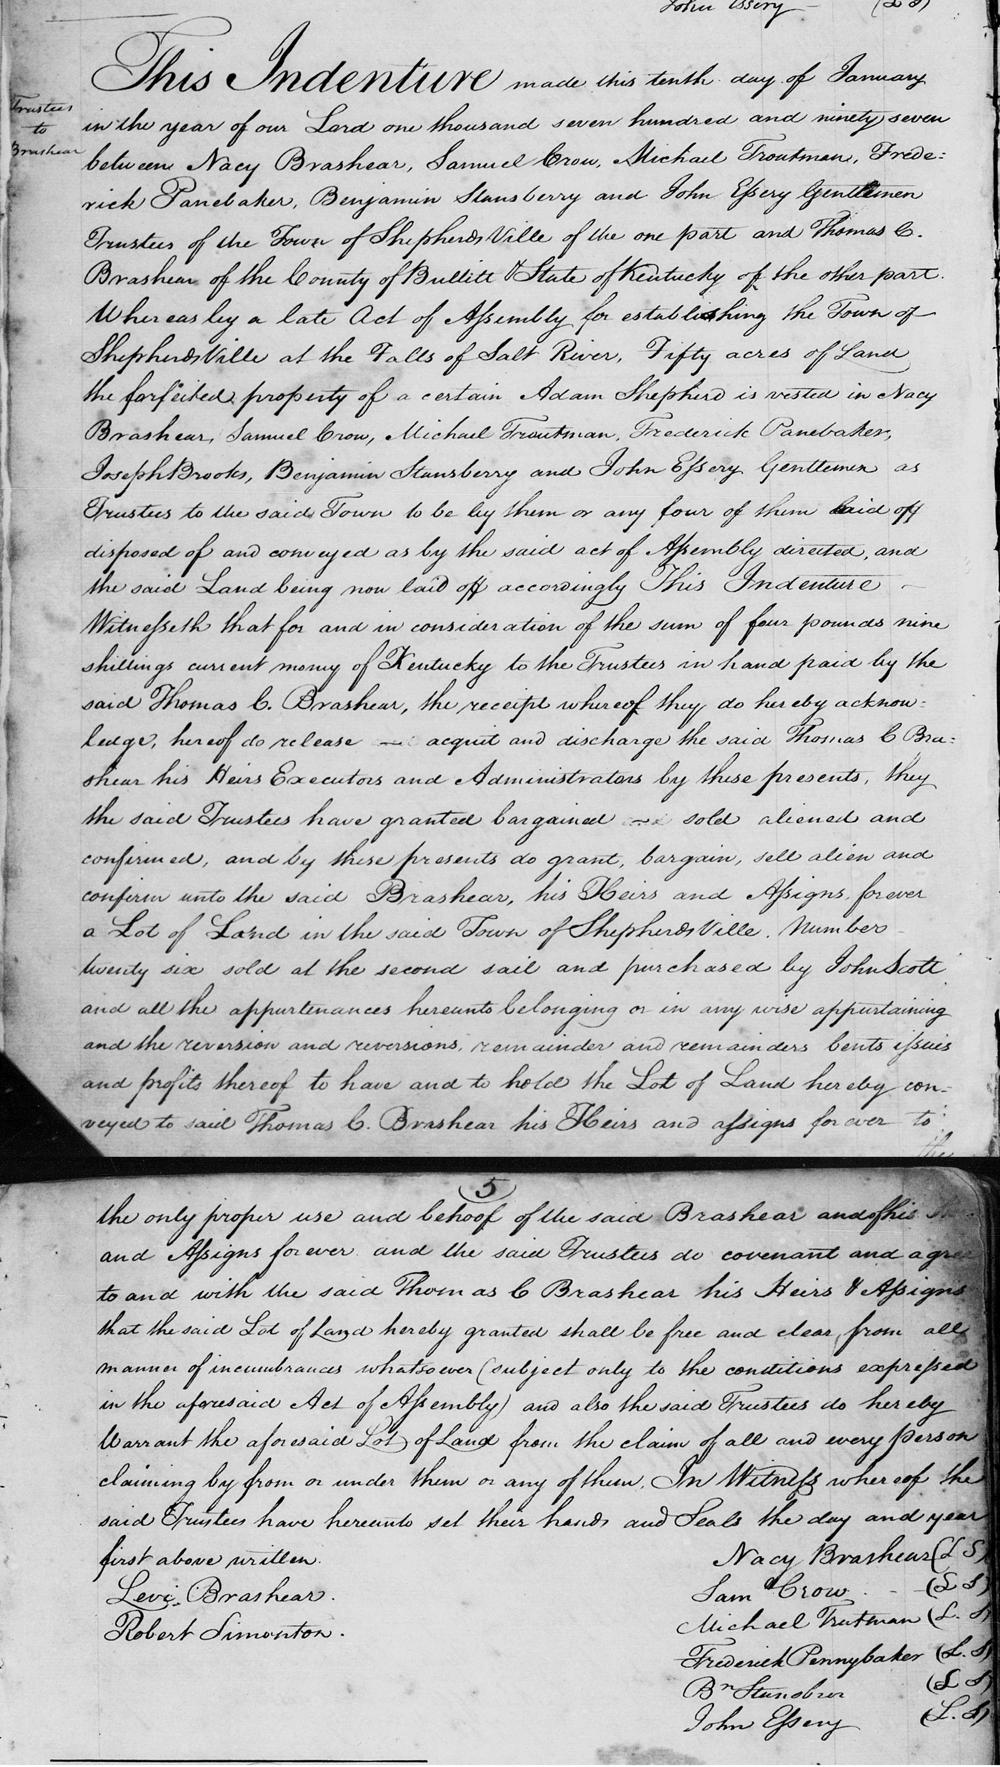 John Essery (L S)
This Indenture made this tenth day of January
Trustees
to
Brashear
in the year of our Lord one thousand seven hundred and ninety seven
between Nacy Brashear, Samuel Crow, Michael Troutman, Frede=
rick Panebaker, Benjamin Stansberry and John Essery Gentlemen
Trustees of the Town of Shepherds Ville of the one part and Thomas C.
Brashear of the County of Bullitt & State of Kentucky of the other part.
Whereas by a late Act of Assembly for establishing the Town of
Shepherds Ville at the Falls of Salt River, Fifty acres of Land
the forfeited property of a certain Adam Shepherd is vested in Nacy
Brashear, Samuel Crow, Michael Troutman, Frederick Panebaker,
Joseph Brooks, Benjamin Stansberry and John Essery Gentlemen as
Trustees to the said Town to be by them or any four of them laid off
disposed of and conveyed as by the said act of Assembly directed, and
the said Land being now laid off accordingly This Indenture
Witnesseth that for and in consideration of the sum of four pounds nine
shillings current money of Kentucky to the Trustees in hand paid by the
said Thomas C. Brashear, the receipt whereof they do hereby acknow=
ledge, hereof do release acquit and discharge the said Thomas C Bra=
shear his Heirs Executors and Administrators by these presents, they
the said Trustees have granted bargained sold aliened and
confirmed, and by these presents do grant, bargain, sell alien and
confirm unto the said Brashear, his Heirs and Assigns forever
a Lot of Land in the said Town of Shepherds Ville. Number
twenty six sold at the second sail and purchased by John Scott
and all the appurtenances hereunto belonging or in any wise appurtaining
and the reversion and reversions, remainder and remainders bents issues
and profits thereof to have and to hold the Lot of Land hereby con=
veyed to said Thomas C. Brashear his Heirs and assigns forever to
the
5
the only proper use and behoof of the said Brashear and of his
and Assigns forever and the said Trustees do covenant and agree
to and with the said Thomas C Brashear his Heirs & Assigns
that the said Lot of Land hereby granted shall be free and clear from all
manner of incumbrances whatsoever (subject only to the conditions expressed
in the aforesaid Act of Assembly) and also the said Trustees do hereby
Warrant the aforesaid Lot of Land from the claim of all and every person
claiming by from or under them or any of them, In Witness whereof the
said Trustees have hereunto set their hands and Seals the day and year
first above written.
Nacy Brashear (L S)
Levi Brashear.
Sam Crow (L S)
Robert Simonton.
Michael Trutman (L. S)
Frederick Pennybaker (L. S)
Bn Stansbrer (L S)
John Essery (L. S)